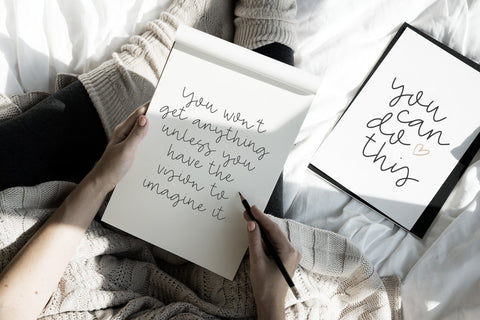 You won't
get anything
unless you
have the
vision to
imagine it
you
can
do
this